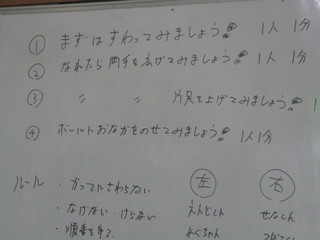 ① まずはすわってみましょう! 1人 1分
② なれたら両手を広げてみましょう! 1人 1分
③ 〃 〃 片足を上げてみましょう!
④ ボールにおなかをのせてみましょう! 1人1分
ルール ・かってにさわらない 左 右
・なげない・けらない えんどしん せなしん
・順番を守る